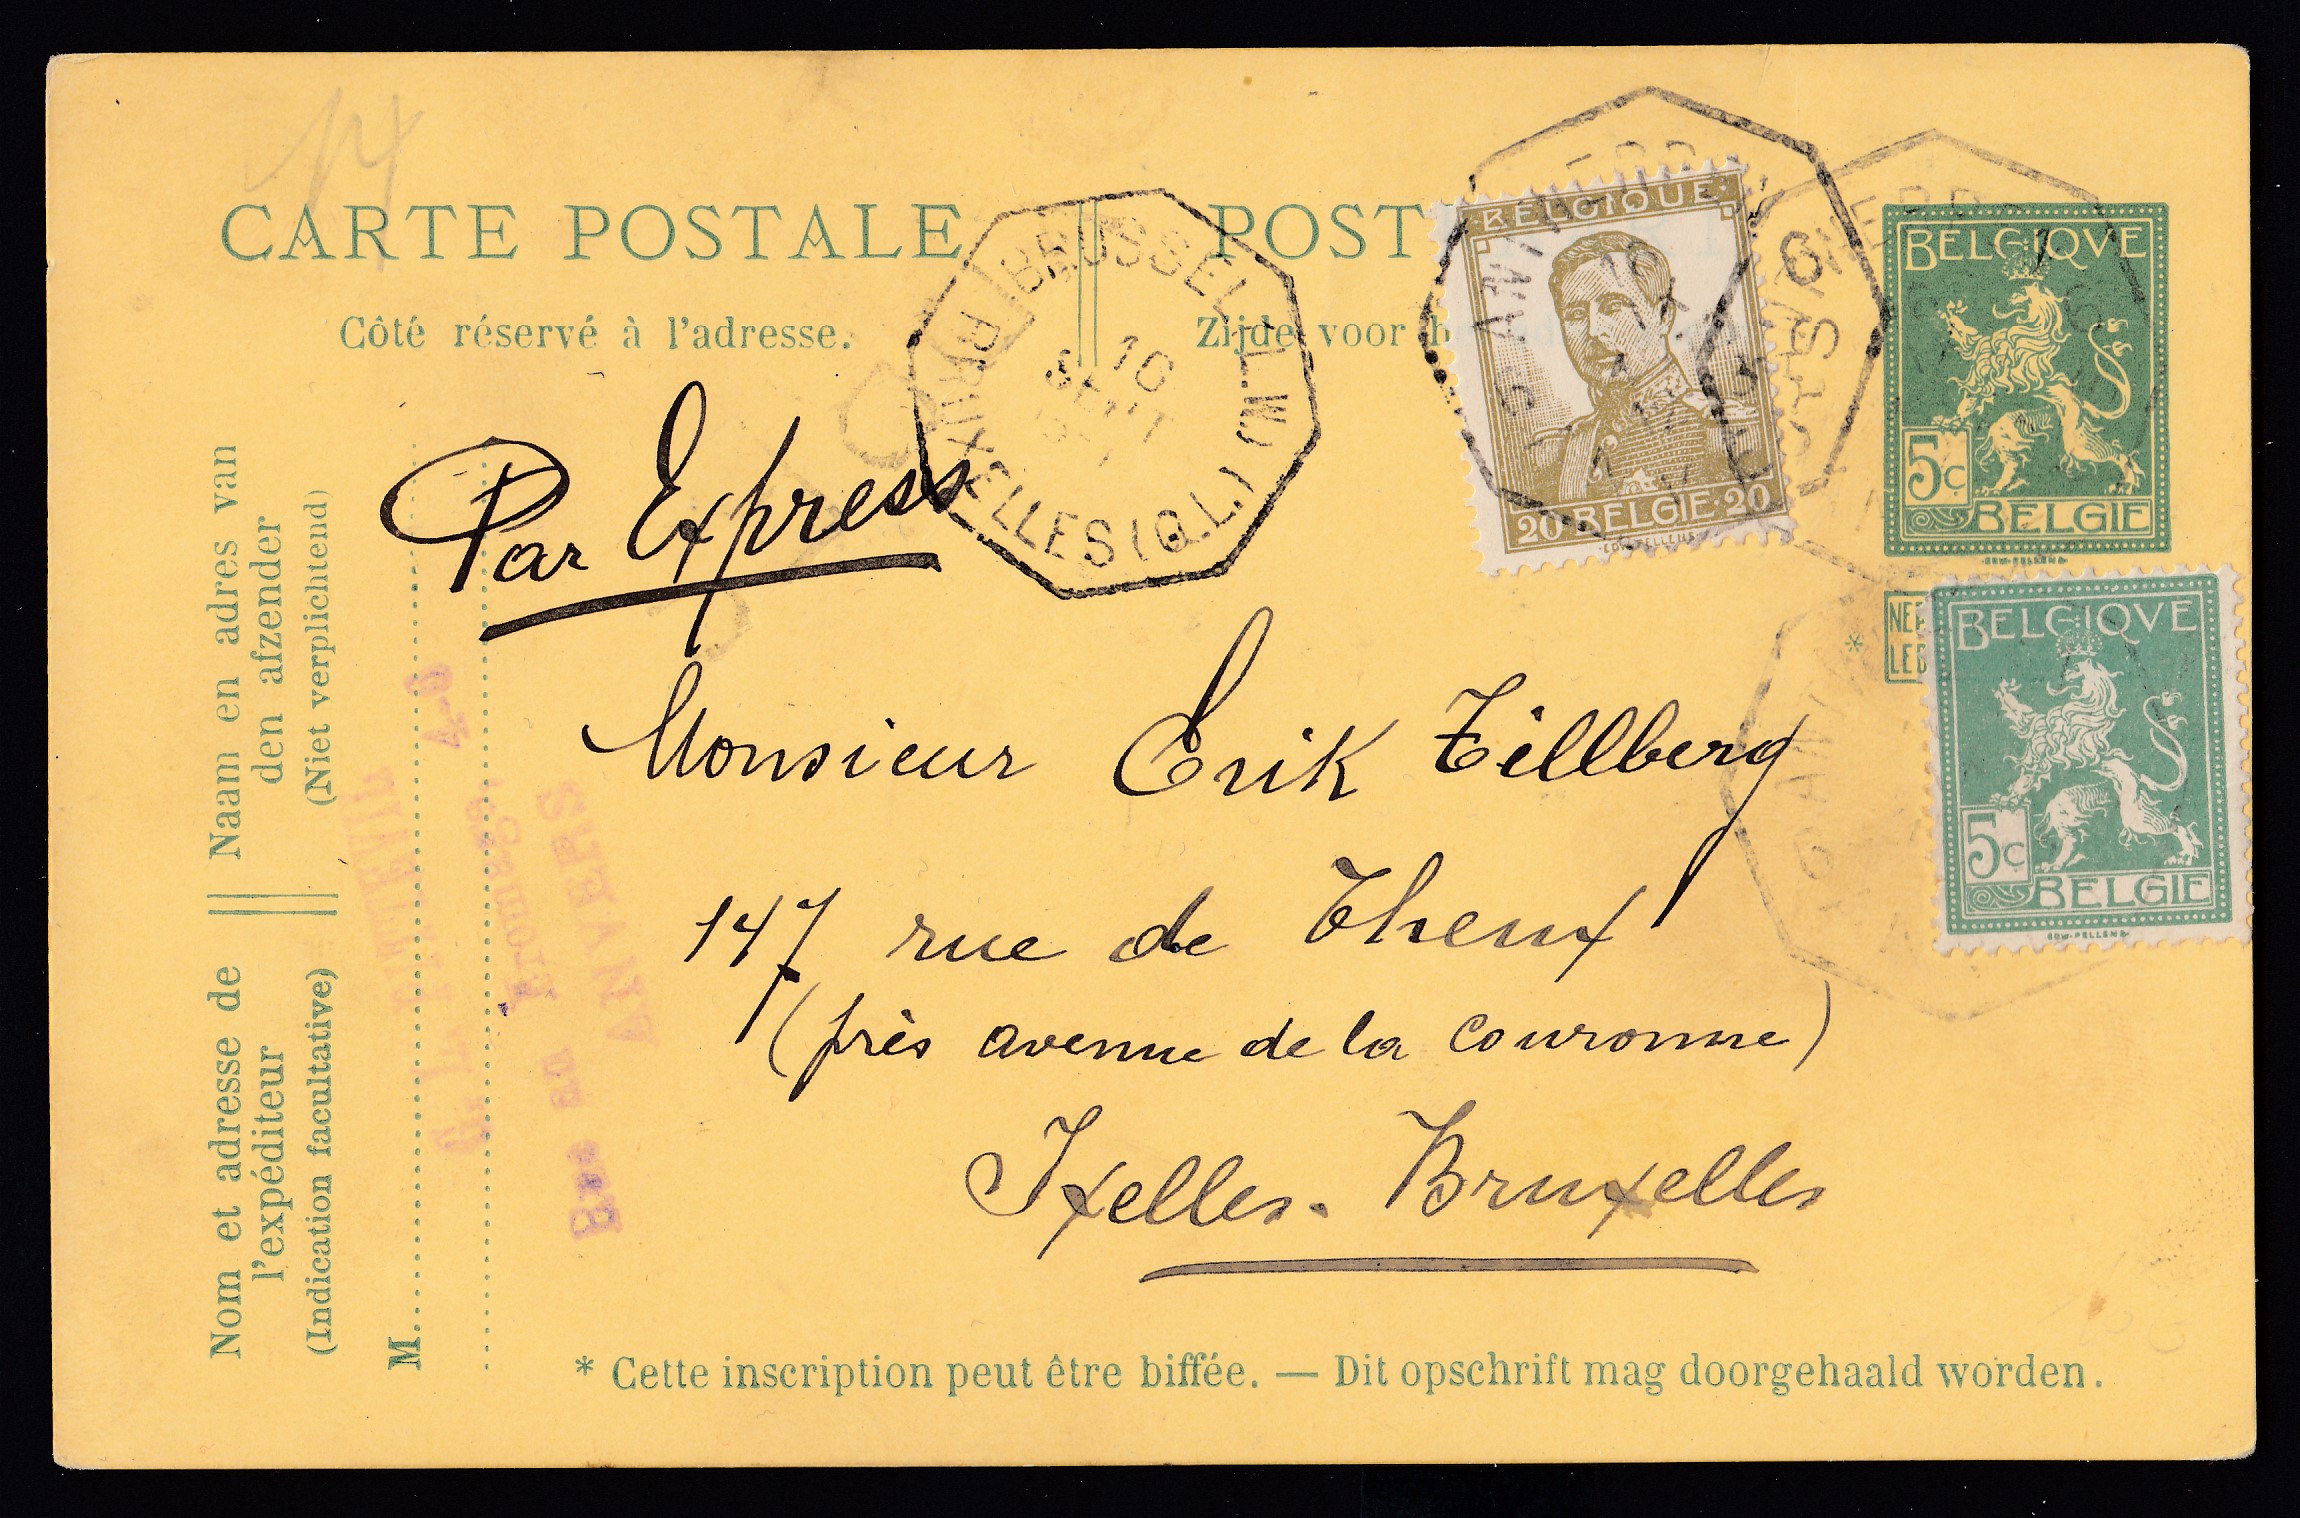 CARTE POSTALE
POST
Côté réservé à l'adresse.
Zijde voor
BRUSSEL
BRUXELLES (Q.L.)
10
SEPT
BELGIQUE
20 BELGIE 20
BELGIQVE
5c
BELGIE
BELGIQVE
5c
BELGIE
Par Express
Monsieur Erik Tillberg
147 rue de Theux
(près avenue de la Couronne)
Ixelles. Bruxelles
Naam en adres van
den afzender
(Niet verplichtend)
Nom et adresse de
l'expéditeur
(Indication facultative)
M.
ANVERS
* Cette inscription peut être biffée. — Dit opschrift mag doorgehaald worden.